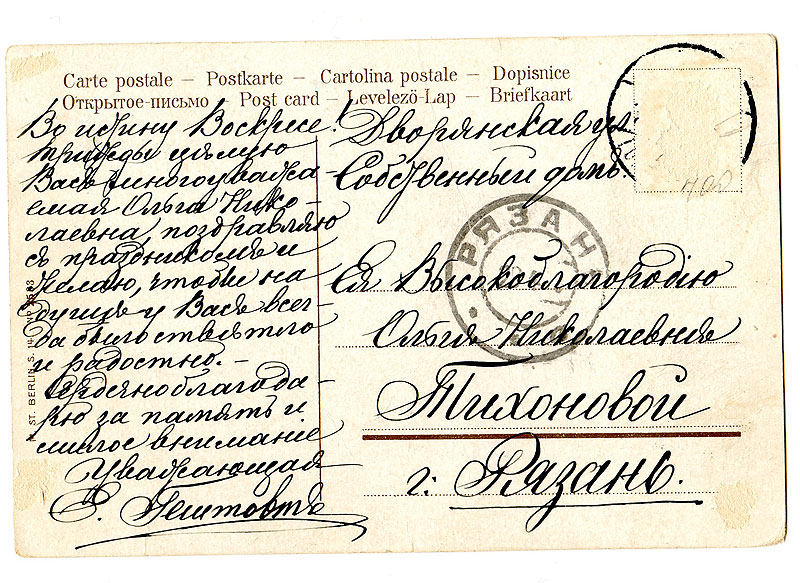 Carte postale – Postkarte – Cartolina postale – Dopisnice
Открытое-письмо – Post card – Levelező-Lap – Briefkaart
Во истину Воскресе!
Трижды цѣлую
Васъ многоуважа-
емая Ольга Нико-
лаевна, поздравляю
съ праздникомъ и
желаю, чтобы на
душѣ у Васъ всег-
да было свѣтло
и радостно. –
Сердечно благода-
рю за память и
милое вниманіе
Уважающая
Е. Гештовтъ
Дворянская ул.
Собственный домъ.
Ея Высокоблагородію
Ольгѣ Николаевнѣ
Тихоновой
г. Рязань.
РЯЗАН
ST. BERLIN. S. 14.
400